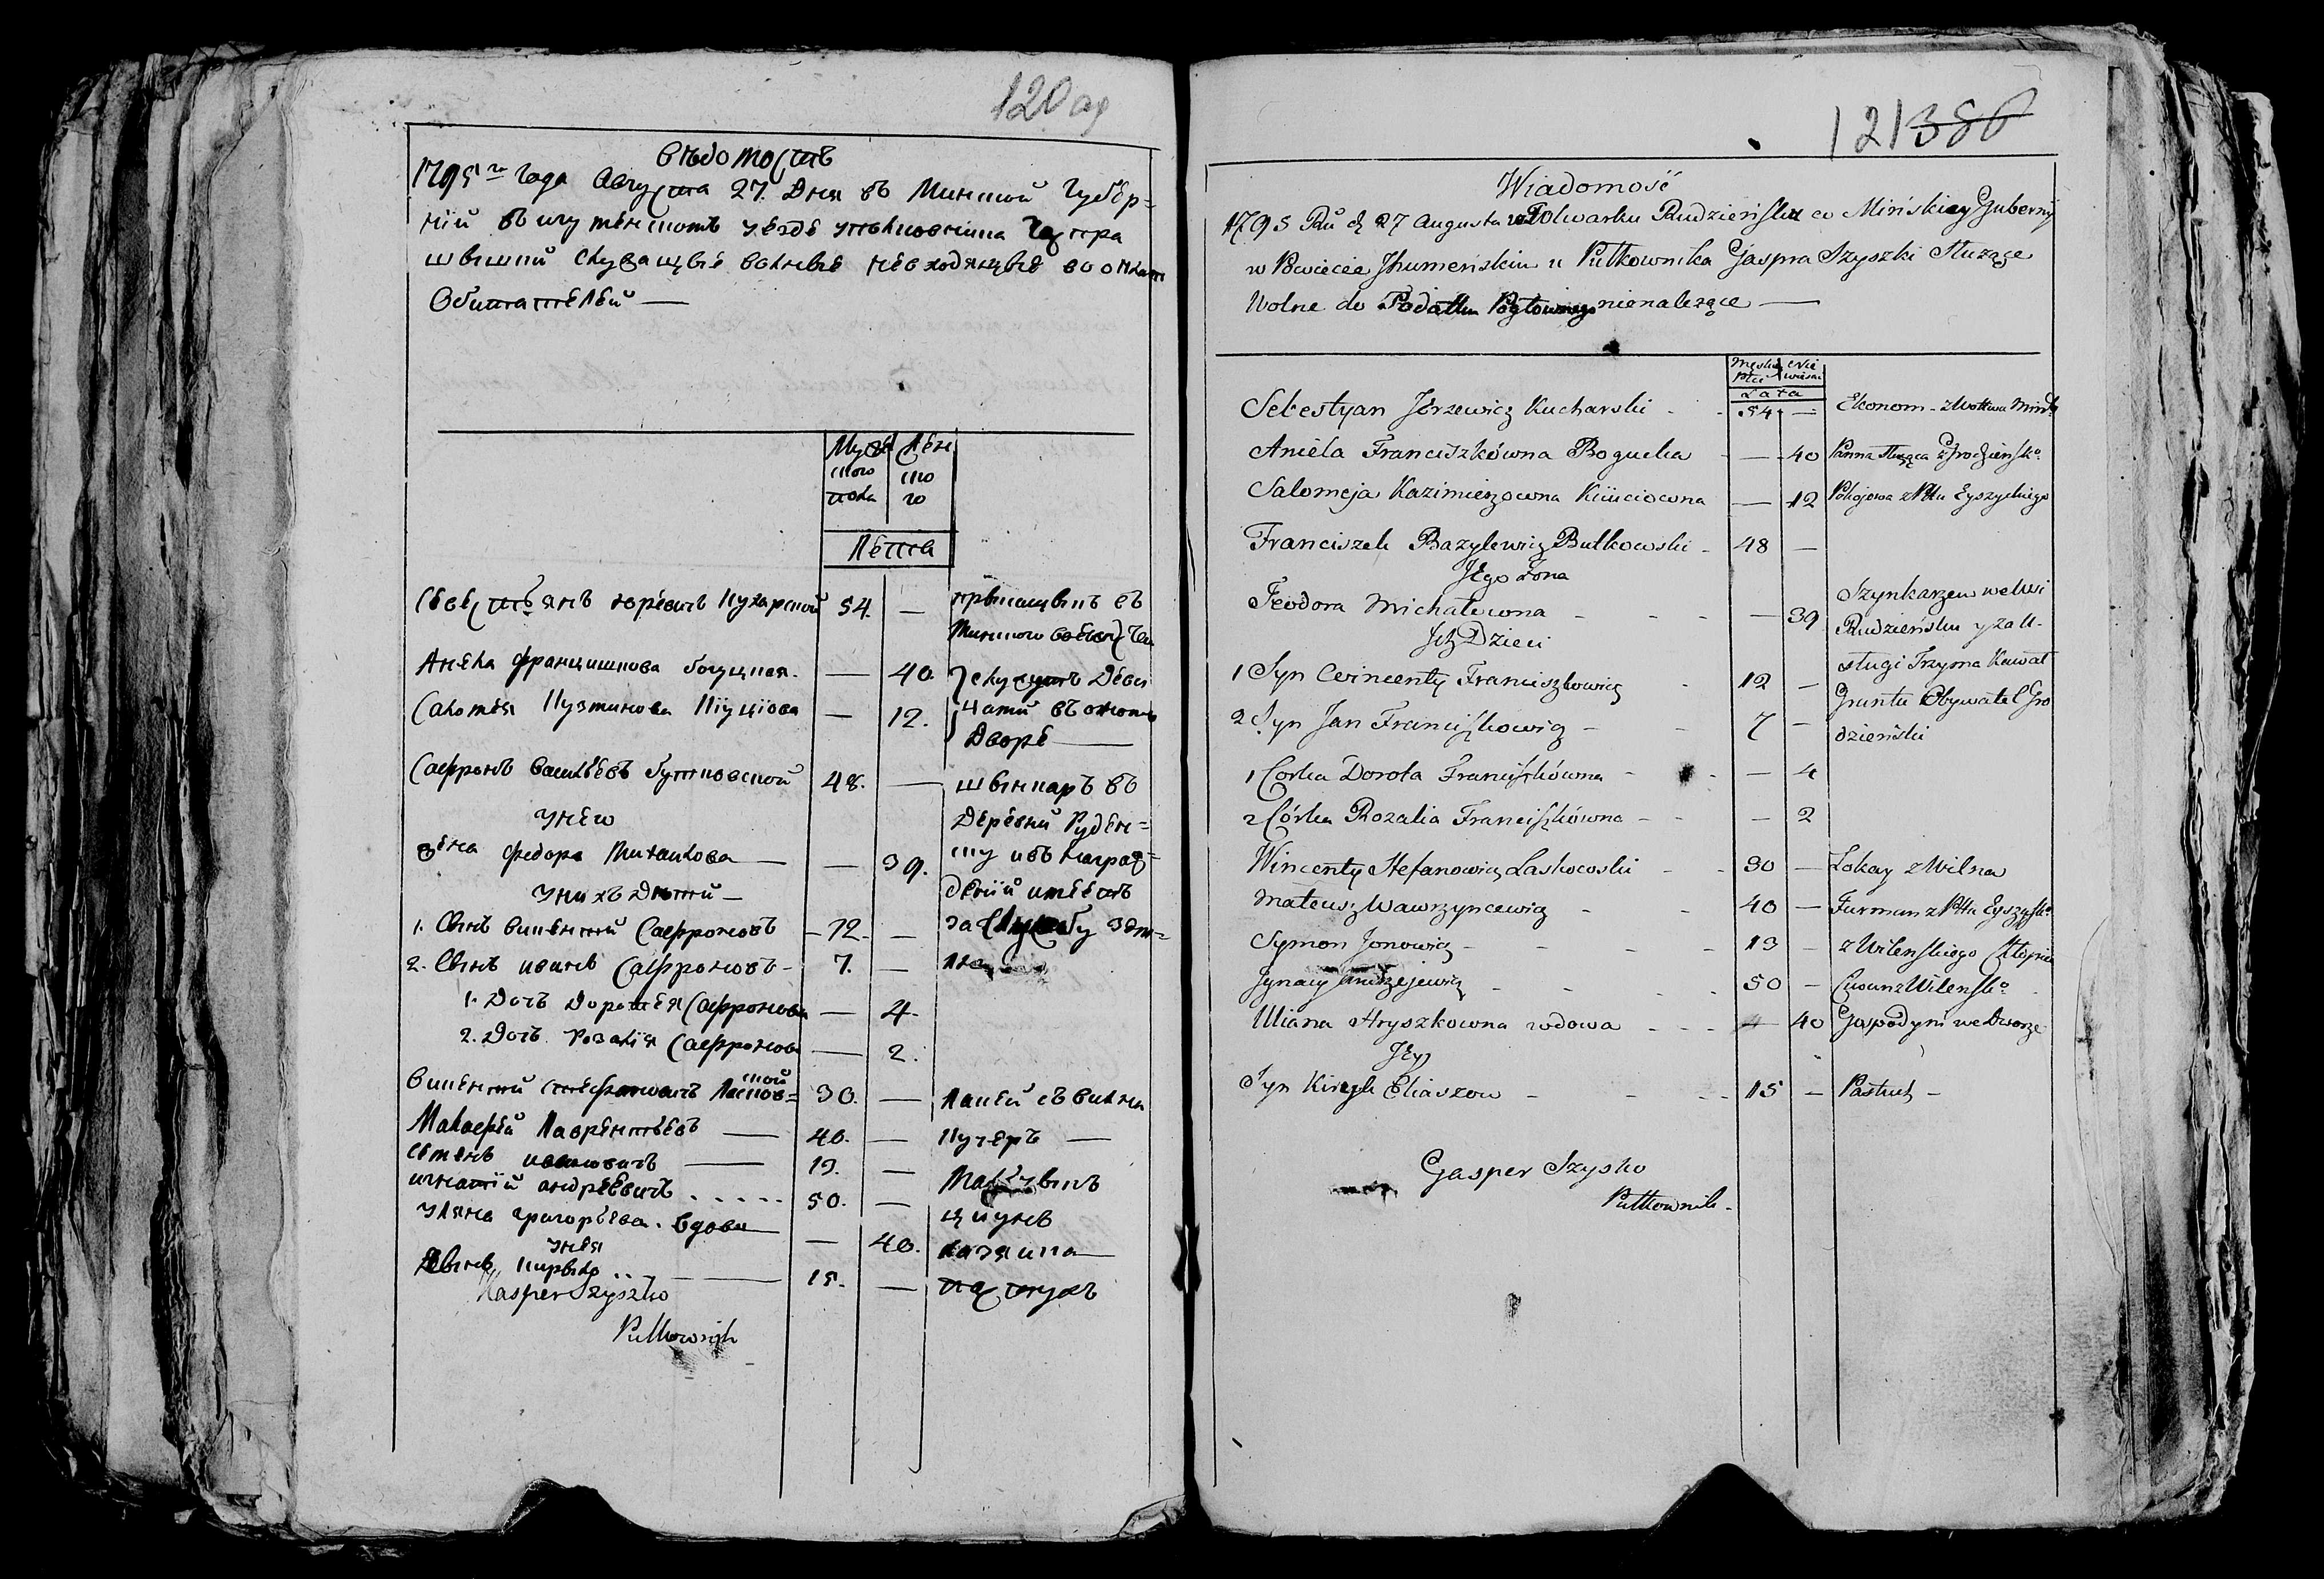 120 об
Вѣдомость
1795го Года Августа 27. Дня въ Минской Губер=
нїи въ игуменскомъ уезде уполковника Гаспра
шышки служащые волные невходящые во окладъ
Обитателей —
Муже Жен
ского ско
пола го
Лета
Себестьянъ юревичь Кухарской 54. —
Анеля францишкова богуцкая. — 40.
Саломея Кузминова — 12.
служатъ Деви
цами въ оном
Дворе —
Сафронъ Васильевъ бутковской 48. — шынкаръ въ
Деревни Руден=
унего
жена федора Михалкова — — 39.
ску изъ награж=
дении имеетъ
унихъ Дѣти —
1. Сынъ викентий Сафроновъ — 12. —
за Службу зем=
2. Сынъ иванъ Сафроновъ — 7. —
1. Дочь Доротея Сафронова — 4.
2. Дочь Розалїя Сафронова — 2.
викентий стефановичь Ласков=
ской
30. — Лакей съ вилни
Мальфей Лаврентьевъ — 40. — Кучеръ —
семенъ ивановичь — 13. —
игнатїй андреевичь . . . . . 50. — циунъ
уляна григорьева. вдова — — 40. хазяика —
унея
Сынъ Кирыло . . — 15. — пастухъ
Kasper Szyszko
Pułkownik
121 386
Wiadomość
1795 Rù d 27 Augusta w Folwarku Rudzieńsku w Mińskiey Gubernij
w Powiecie Jhumeńskim u Pułkownika Gaspra Szyszki Służące
Wolne do Podatku Pogłownego nienależące —
Męskiey Nie
Płci wieści
Lata
Sebestyan Jerzewicz Kucharski - - 54 — Ekonom - z Wottwa Mińsk
Aniela Franciszkówna Bogucka - — 40 Panna służąca z Grodzieńsko
Salomeja Kazimierzowna Kiuciowna — 12 Pokojowa z Pttu Eyszyskiego
Franciszek Bazylewicz Butkowski - 48 —
Jego żona
Teodora Michałowna - - - — 39
Szynkarzem we Wsi
Rudzieńsku y za U-
Jch Dzieci
sługi Trzyma Kawał
1 Syn Wincenty Franciszkowicz - 12 —
Gruntu Obywatel Gro
2 Syn Jan Franciszkowicz - - 7 —
dzieński
1 Corka Dorota Franciszkówna - - — 4
2 Córka Rozalia Franciszkówna - - — 2
Wincenty Stefanowicz Laskowski - - 30 — Lokay z Wilna
Mateusz Wawrzyncewicz - - 40 — Furman z Pttu Eyszysko
Symon Jonowicz - - - - 13 — z Wileńskiego Chłopiec
Jgnacy Andrzejewicz - - - - 50 — Ciwun z Wileńsko
Uliana Hryszkowna wdowa - - - 40 Gospodyni we Dworze
Jey
Syn Kiryk Eliaszow - - - - 15 — Pastuch -
Gasper Szyszko
Pułkownik -